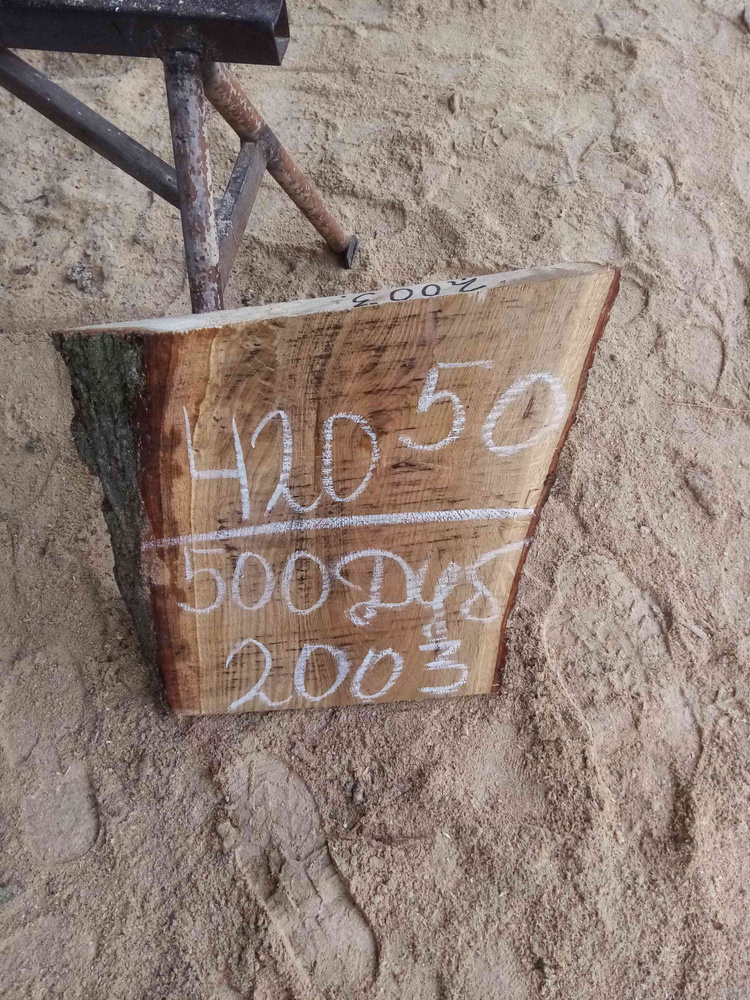 2003
420 50
500 Дуб
2003